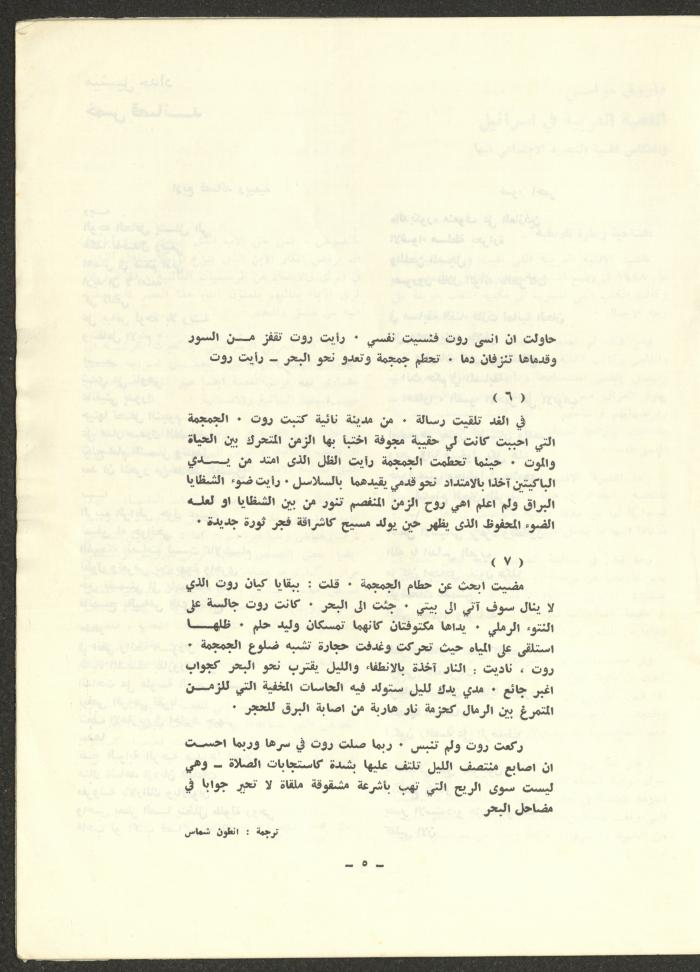 حاولت ان انسى روت فنسيت نفسي · رأيت روت تقفز مـــن السور
وقدماها تنزفان دما · تحطم جمجمة وتعدو نحو البحر ــ رأيت روت
( ٦ )
في الغد تلقيت رسالة · من مدينة نائية كتبت روت · الجمجمة
التي احببت كانت لي حقيبة مجوفة اختبأ بها الزمن المتحرك بين الحياة
والموت · حينما تحطمت الجمجمة رأيت الظل الذى امتد من يـــدي
الباكيتين آخذا بالامتداد نحو قدمي يقيدهما بالسلاسل · رأيت ضوء الشظايا
البراق ولم اعلم اهي روح الزمن المنفصم تنور من بين الشظايا او لعلــه
الضوء المحفوظ الذى يظهر حين يولد مسيح كاشراقة فجر ثورة جديدة ·
( ٧ )
مضيت ابحث عن حطام الجمجمة · قلت : ببقايا كيان روت الذي
لا ينال سوف آتي الى بيتي · جئت الى البحر · كانت روت جالسة على
النتوء الرملي · يداها مكتوفتان كانهما تمسكان وليد حلم · ظلهـــا
استلقى على المياه حيث تحركت وغدفت حجارة تشبه ضلوع الجمجمة ·
روت ، ناديت : النار آخذة بالانطفاء والليل يقترب نحو البحر كجواب
اغبر جائع · مدي يدك لليل ستولد فيه الحاسات المخفية التي للزمــن
المتمرغ بين الرمال كحزمة نار هاربة من اصابة البرق للحجر ·
ركعت روت ولم تنبس · ربما صلت روت في سرها وربما احســت
ان اصابع منتصف الليل تلتف عليها بشدة كاستجابات الصلاة ــ وهي
ليست سوى الريح التي تهب باشرعة مشقوقة ملقاة لا تحير جوابا في
مضاحل البحر
ترجمة : انطون شماس
ــ ٥ ــ